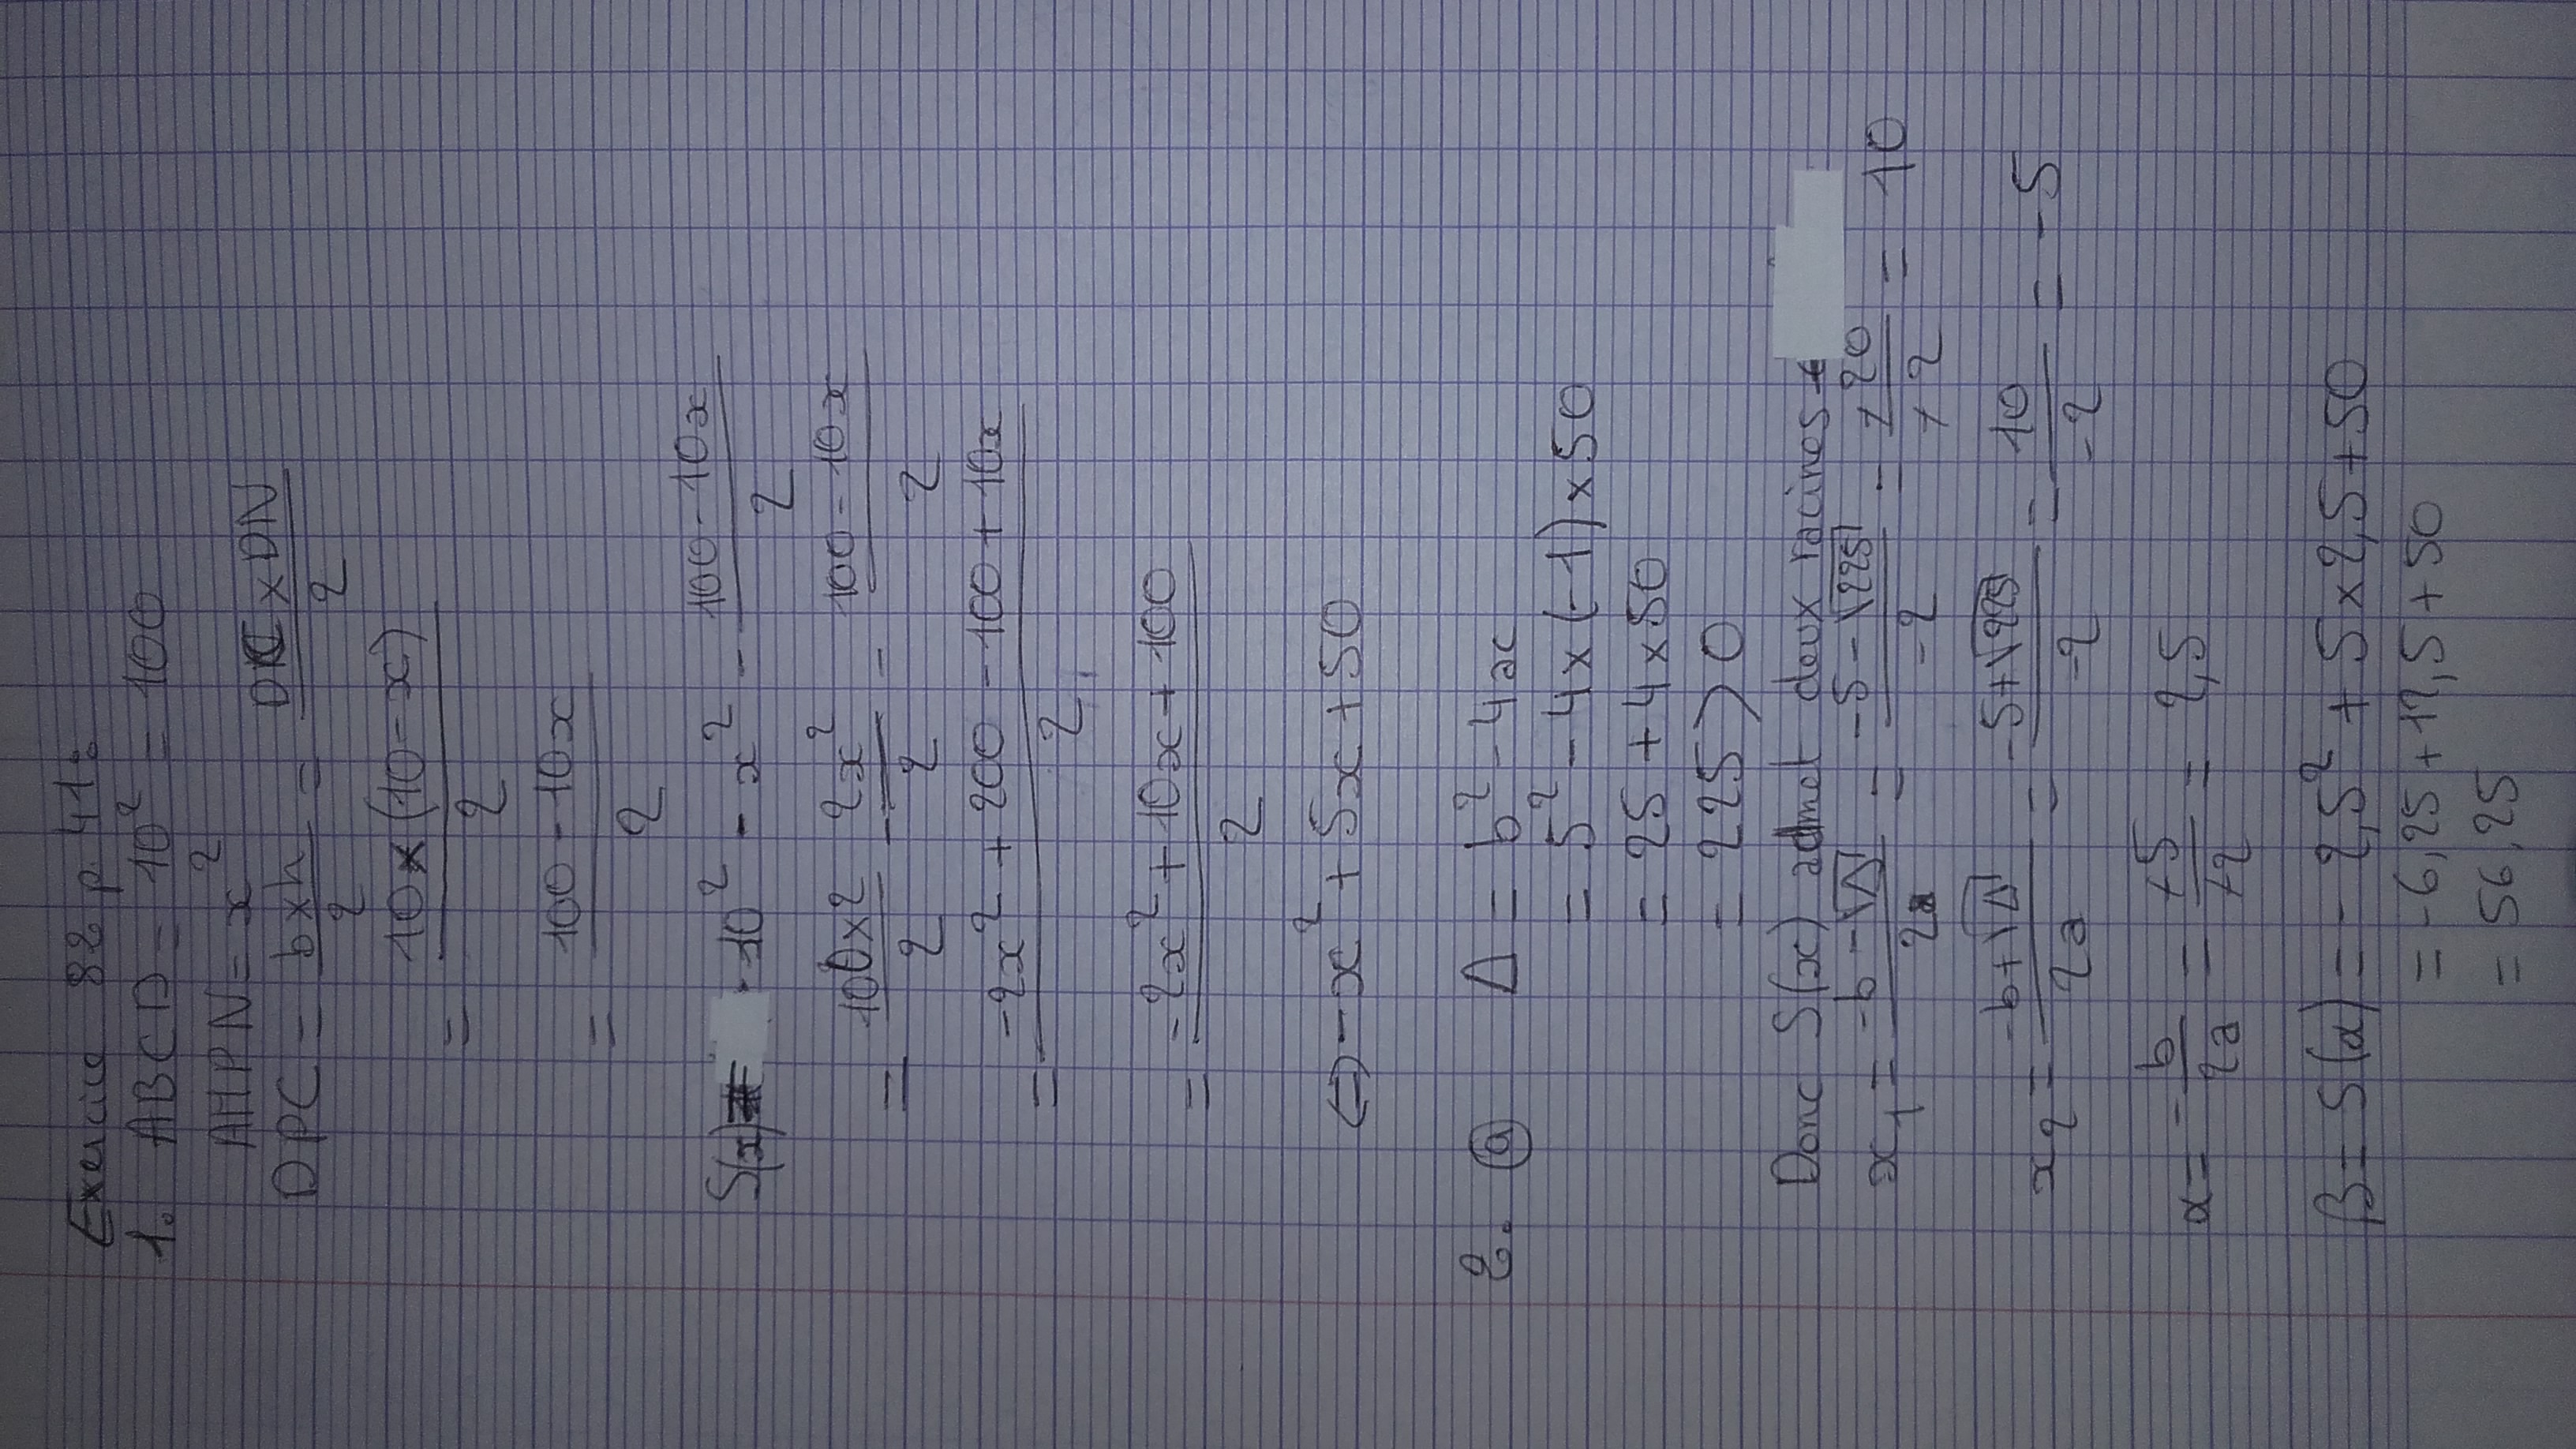 Exercice 82 p. 41 :
1. ABCD = 10² = 100
AMPN = x²
DPC = (b×h)/2 = (DC × DN)/2
= (10 × (10 - x))/2
= (100 - 10x)/2
S(x) = 10² - x² - (100 - 10x)/2
= (100×2)/2 - 2x²/2 - (100 - 10x)/2
= (-2x² + 200 - 100 + 10x)/2
= (-2x² + 10x + 100)/2
⇔ -x² + 5x + 50
2. (a) Δ = b² - 4ac
= 5² - 4 × (-1) × 50
= 25 + 4 × 50
= 225 > 0
Donc S(x) admet deux racines
x₁ = (-b - √Δ)/2a = (-5 - √225)/-2 = -20/-2 = 10
x₂ = (-b + √Δ)/2a = (-5 + √225)/-2 = 10/-2 = -5
α = -b/2a = -5/-2 = 2,5
β = S(α) = -2,5² + 5 × 2,5 + 50
= -6,25 + 12,5 + 50
= 56,25